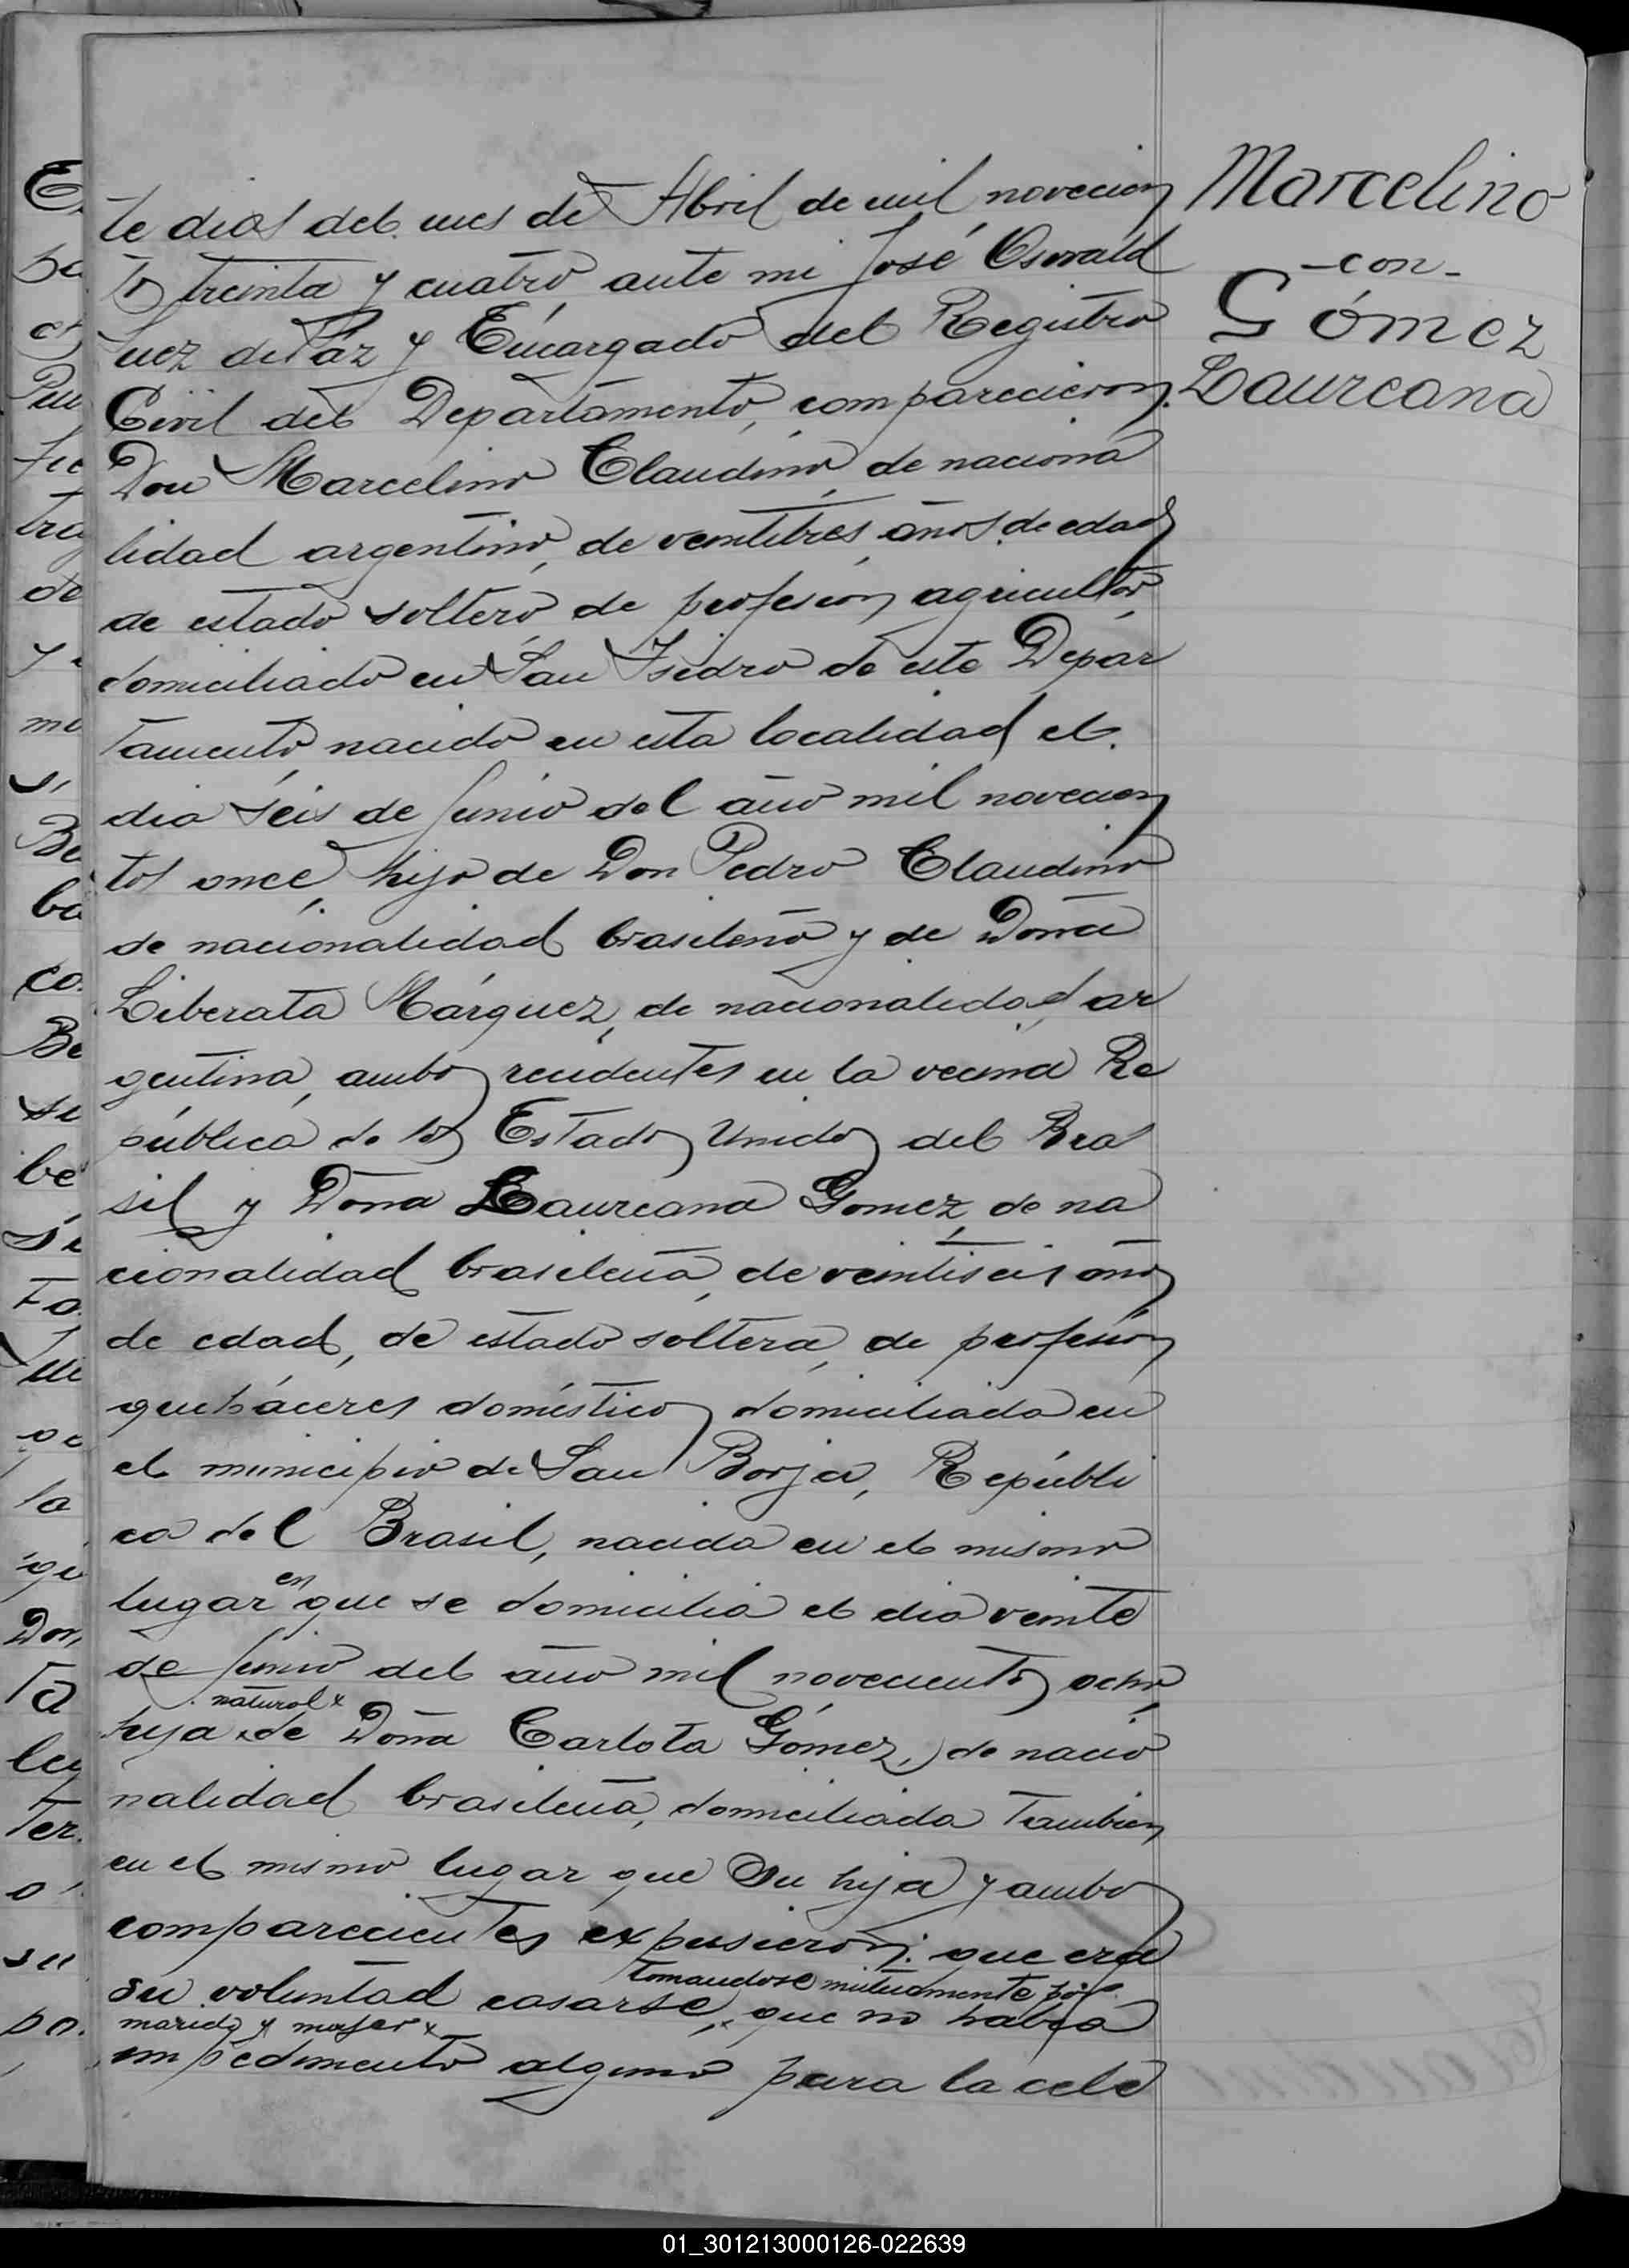 te dias del mes de Abril de mil novecien
tos treinta y cuatro ante mi José Oswald
Juez de Paz y Encargado del Registro
Civil del Departamento, comparecieron.
Don Marcelino Claudino, de naciona
lidad argentino, de veintitres años de edad
de estado soltero de profesión agricultor,
domiciliado en San Isidro de este Depar
tamento, nacido en esta localidad el
dia seis de Junio del año mil novecien
tos once, hijo de Don Pedro Claudino
de nacionalidad brasileño y de Doña
Liberata Márquez, de nacionalidad ar
gentina, ambos residentes en la vecina Re
pública de los Estados Unidos del Bra
sil y Doña Laureana Gomez, de na
cionalidad brasileña, de veintiseis años
de edad, de estado soltera, de profesión
quehaceres domésticos domiciliada en
el municipio de San Borja, Repúbli
ca del Brasil, nacida en el mismo
lugar en que se domicilia el dia veinte
de Junio del año mil novecientos ocho,
natural x
hija x de Doña Carlota Gómez, de nacio
nalidad brasileña, domiciliada tambien
en el mismo lugar que su hija y ambos
comparecientes expusieron: que era
tomandose mutuamente por
su voluntad casarse, x que no habia
marido y mujer x
impedimento alguno para la cele
Marcelino
-con-
Gómez
Laureana
01_301213000126-022639